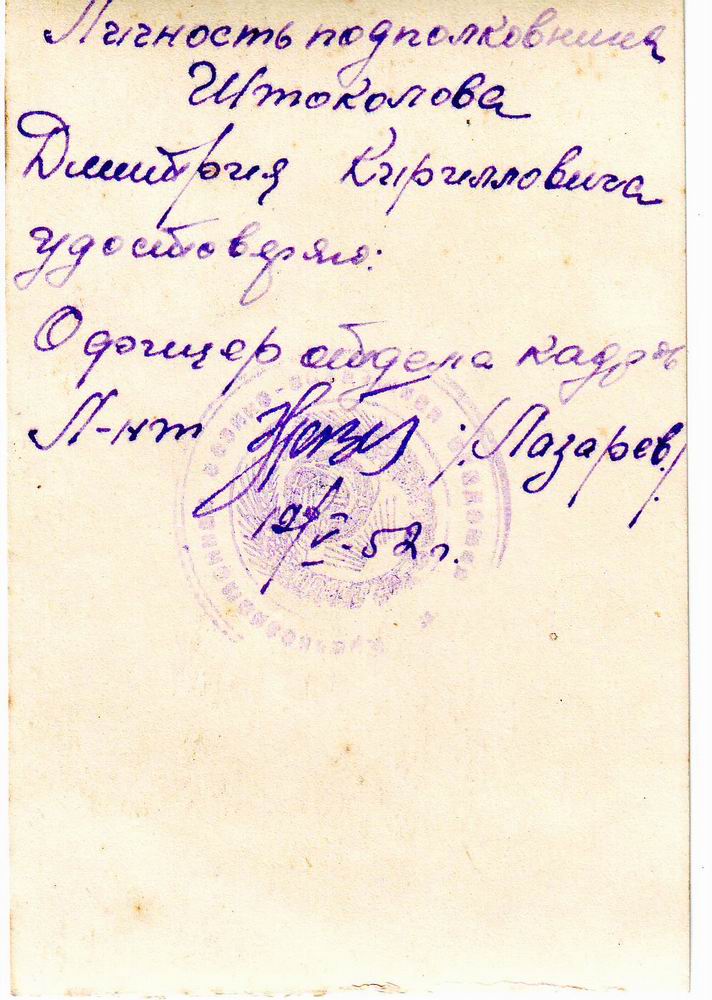 Личность подполковника
Штоколова
Дмитрия Кирилловича
удостоверяю:
Офицер отдела кадров
Л-нт /Лазарев/
V-52 г.